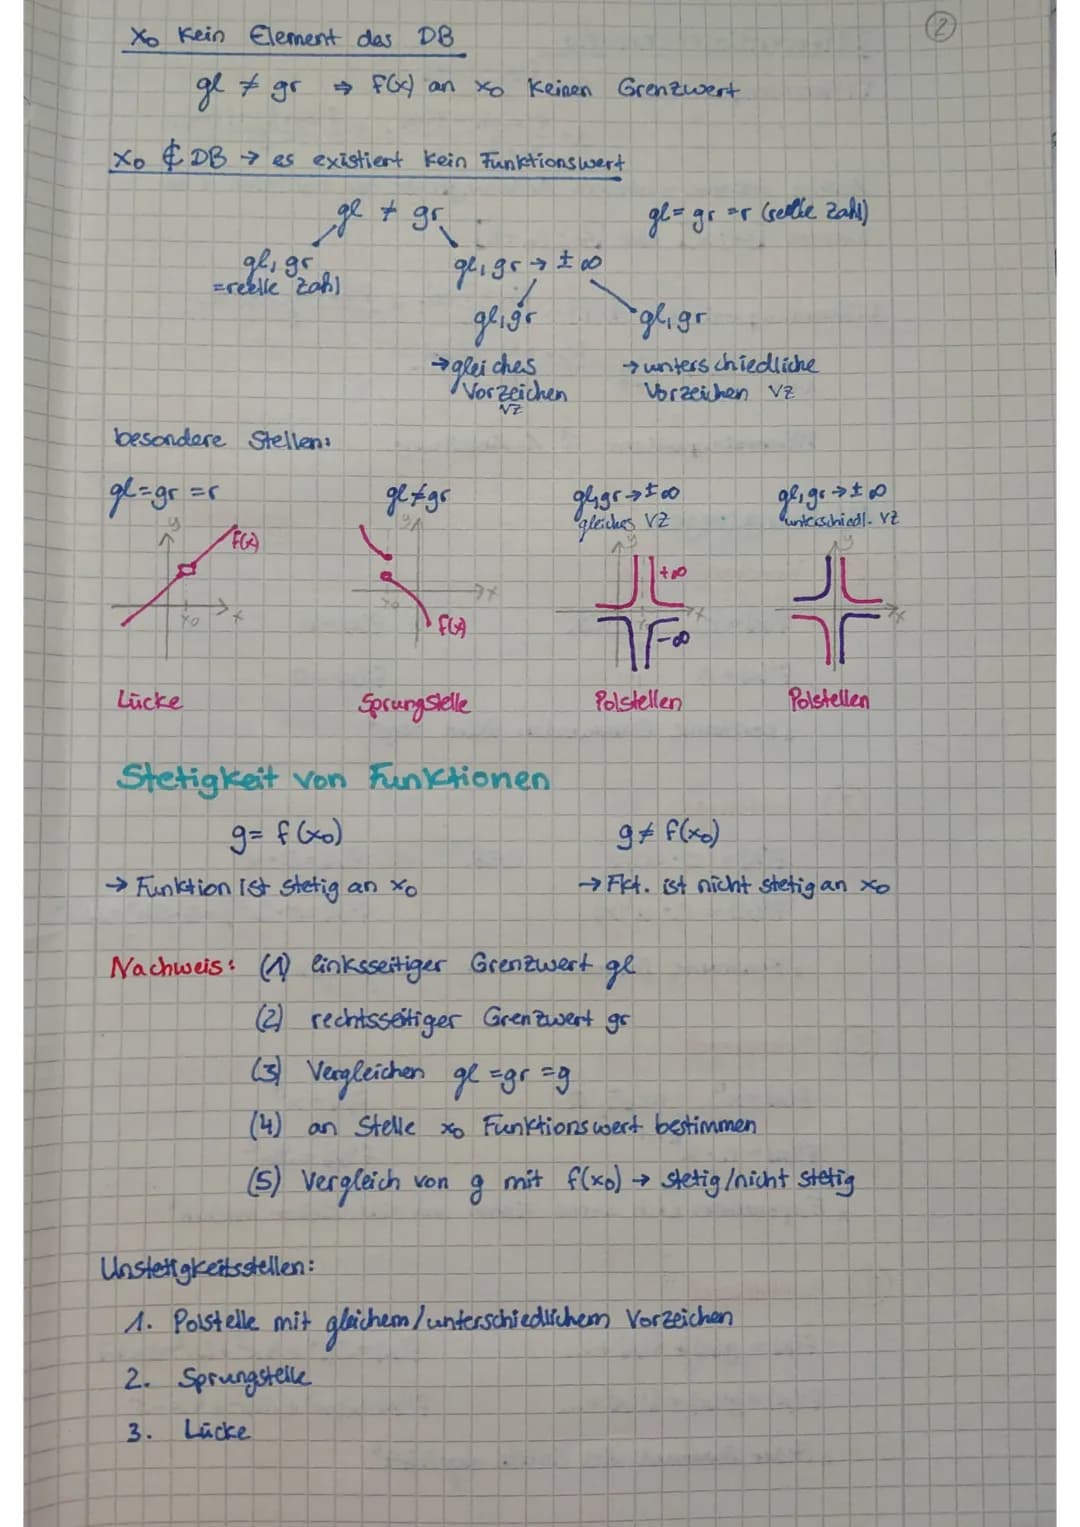 ②
x₀ kein Element des DB
gl ≠ gr ⇒ f(x) an x₀ keinen Grenzwert
x₀ ∉ DB → es existiert kein Funktionswert
gl ≠ gr gl = gr = r (reelle Zahl)
gl, gr gl, gr → ± ∞
= reelle Zahl
gl, gr gl, gr
→ gleiches → unterschiedliche
Vorzeichen Vorzeichen VZ
VZ
besondere Stellen:
gl = gr = r gl ≠ gr gl, gr → ± ∞ gl, gr → ± ∞
gleiches VZ unterschiedl. VZ
y y y y
f(x) +∞
x₀ x x₀ x x x
f(x) -∞
Lücke Sprungstelle Polstellen Polstellen
Stetigkeit von Funktionen
g = f(x₀) g ≠ f(x₀)
→ Funktion ist stetig an x₀ → Fkt. ist nicht stetig an x₀
Nachweis: (1) linksseitiger Grenzwert gl
(2) rechtsseitiger Grenzwert gr
(3) Vergleichen gl = gr = g
(4) an Stelle x₀ Funktionswert bestimmen
(5) Vergleich von g mit f(x₀) → stetig/nicht stetig
Unstetigkeitsstellen:
1. Polstelle mit gleichem/unterschiedlichem Vorzeichen
2. Sprungstelle
3. Lücke